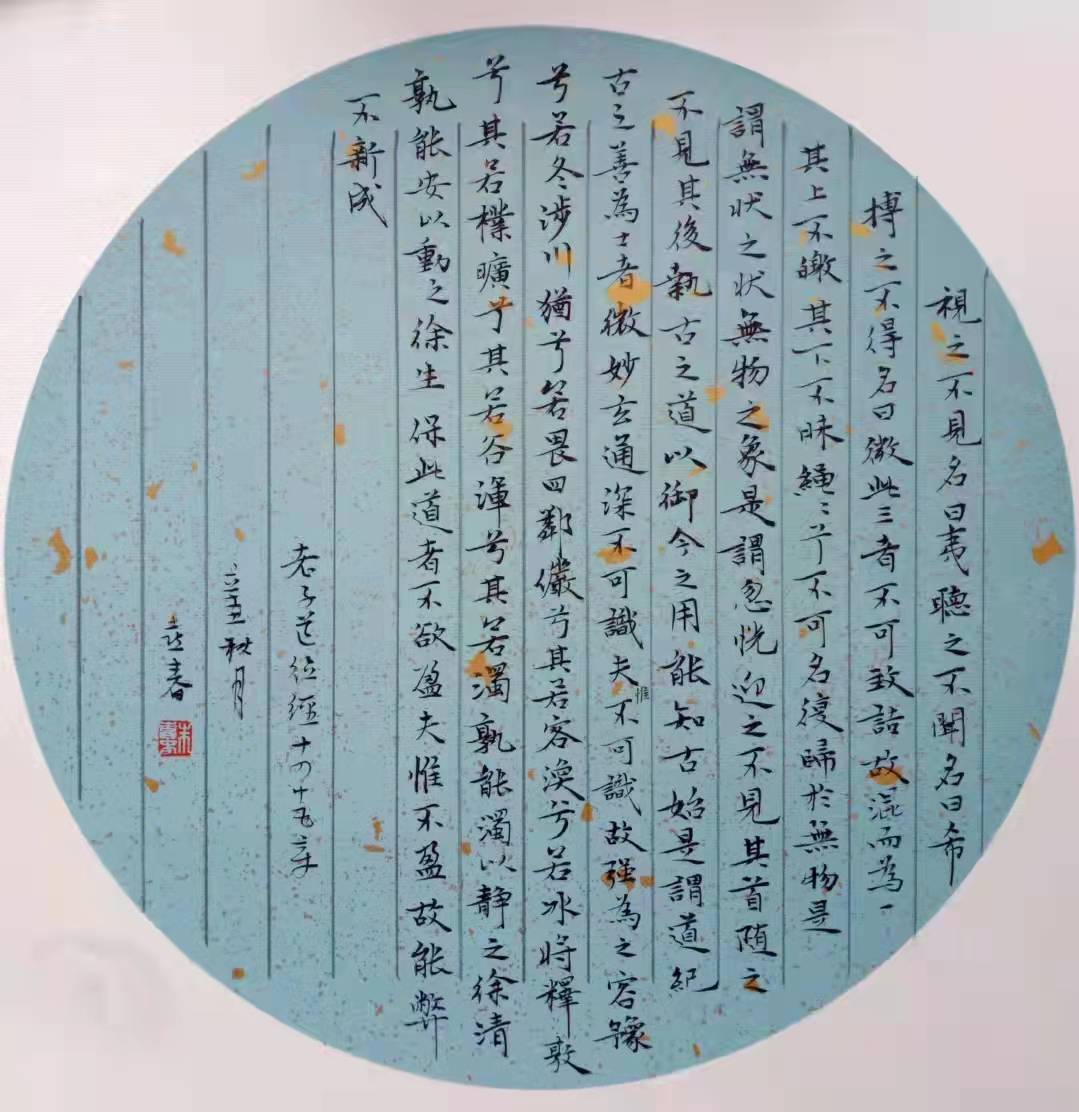 視之不見名曰夷聽之不聞名曰希
搏之不得名曰微此三者不可致詰故混而為一
其上不皦其下不昧繩〻兮不可名復歸於無物是
謂無狀之狀無物之象是謂忽恍迎之不見其首随之
不見其後執古之道以御今之用能知古始是謂道紀
古之善為士者微妙玄通深不可識夫惟不可識故强為之容豫
兮若冬涉川猶兮若畏四鄰儼兮其若容渙兮若冰將釋敦
兮其若樸曠兮其若谷渾兮其若濁孰能濁以静之徐清
孰能安以動之徐生保此道者不欲盈夫惟不盈故能弊
不新成
老子道德經十四十五章
辛丑秋月
春